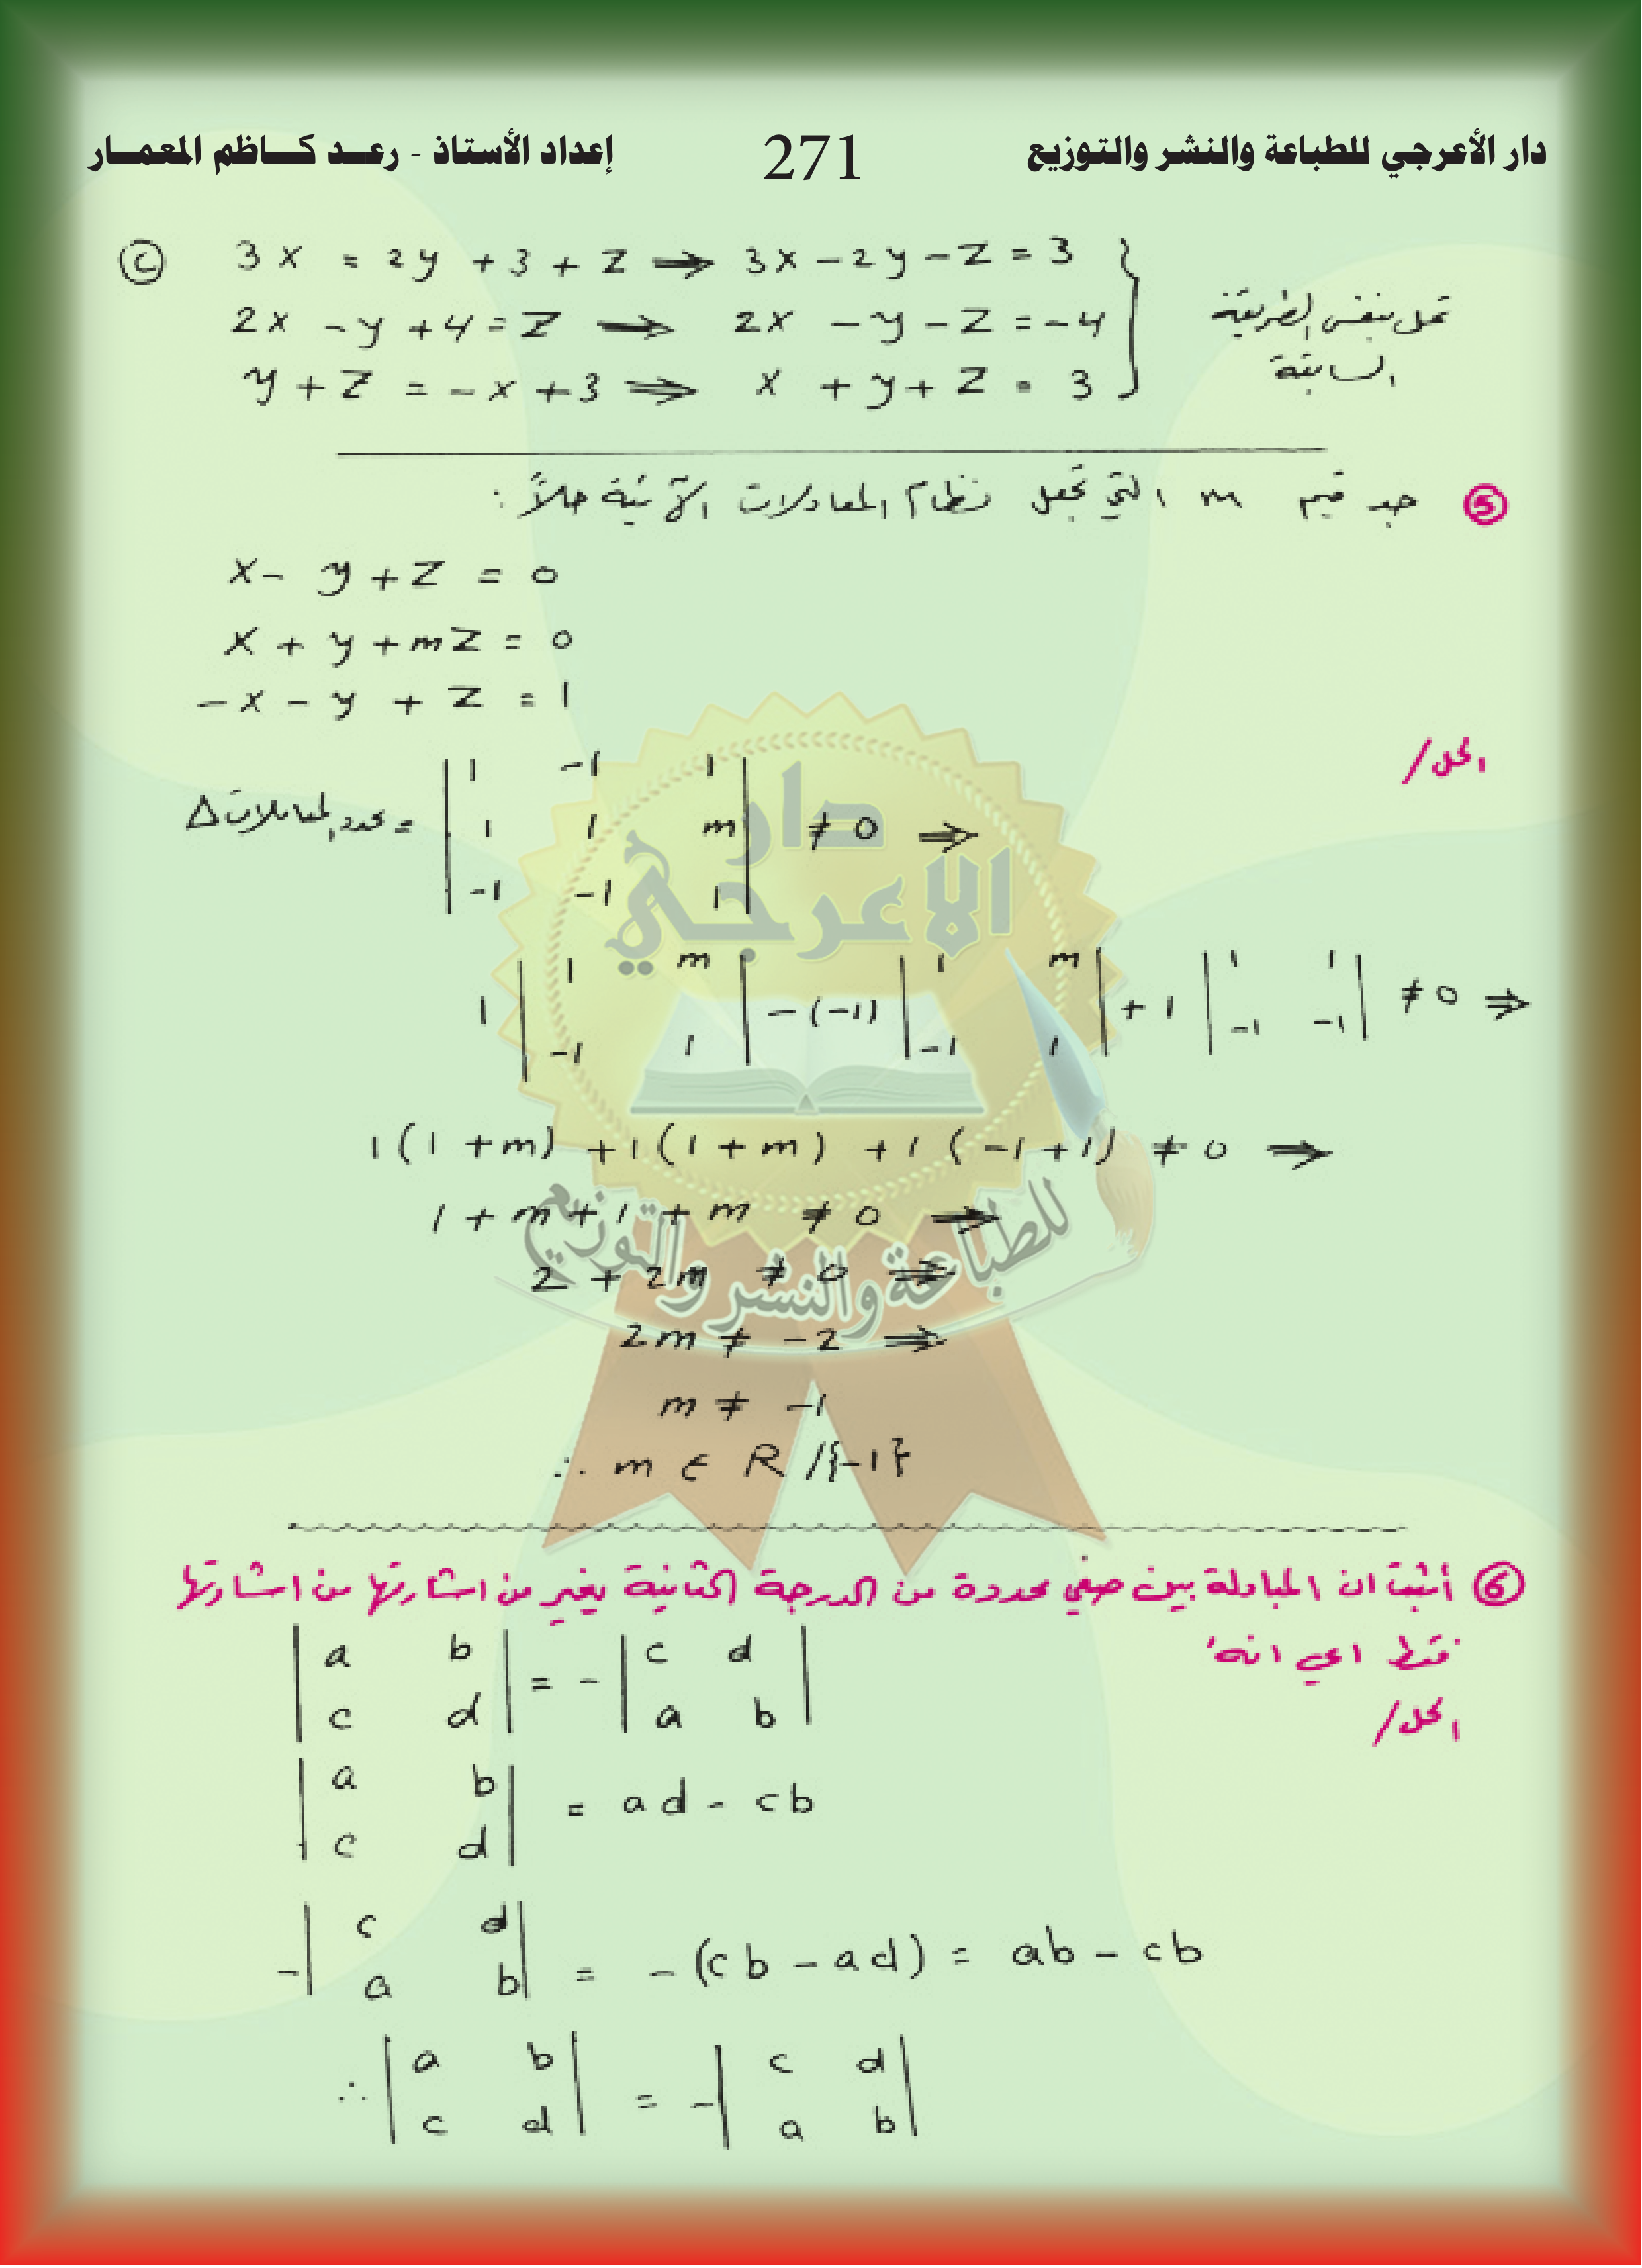 دار الأعرجي للطباعة والنشر والتوزيع 271 إعداد الأستاذ - رعـــد كـــاظم المعمـــار
Ⓒ 3x = 2y + 3 + z ⇒ 3x - 2y - z = 3
2x - y + 4 = z ⇒ 2x - y - z = -4
تحل بنفس الطريقة
y + z = -x + 3 ⇒ x + y + z = 3
السابقة
⑤ جد قيم m التي تجعل نظام المعادلات الآتية حلاً :
x - y + z = 0
x + y + mz = 0
-x - y + z = 1
الحل /
Δ محدد المعاملات = | 1 -1 1 |
| 1 1 m | ≠ 0 ⇒
| -1 -1 1 |
1 | 1 m | - (-1) | 1 m | + 1 | 1 1 | ≠ 0 ⇒
| -1 1 | | -1 1 | | -1 -1 |
1(1+m) + 1(1+m) + 1(-1+1) ≠ 0 ⇒
1 + m + 1 + m ≠ 0 ⇒
2 + 2m ≠ 0 ⇒
2m ≠ -2 ⇒
m ≠ -1
∴ m ∈ R /{-1}
⑥ أثبت ان المبادلة بين صفي محددة من الدرجة الثانية يغير من اشارتها من اشارتها
فقط اي انه
| a b | = - | c d |
| c d | | a b |
الحل /
| a b | = ad - cb
| c d |
- | c d | = -(cb - ad) = ab - cb
| a b |
∴ | a b | = - | c d |
| c d | | a b |
دار
الاعرجي
للطباعة والنشر والتوزيع